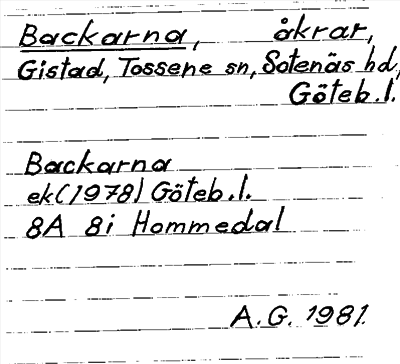 Backarna, åkrar,
Gistad, Tossene sn, Sotenäs hd,
Göteb.l.
Backarna
ek(1978) Göteb.l.
8A 8i Hommedal
A.G. 1981.